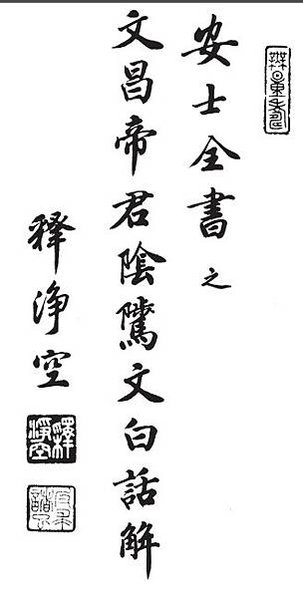 安士全書之
文昌帝君陰騭文白話解
釋淨空
釋淨空